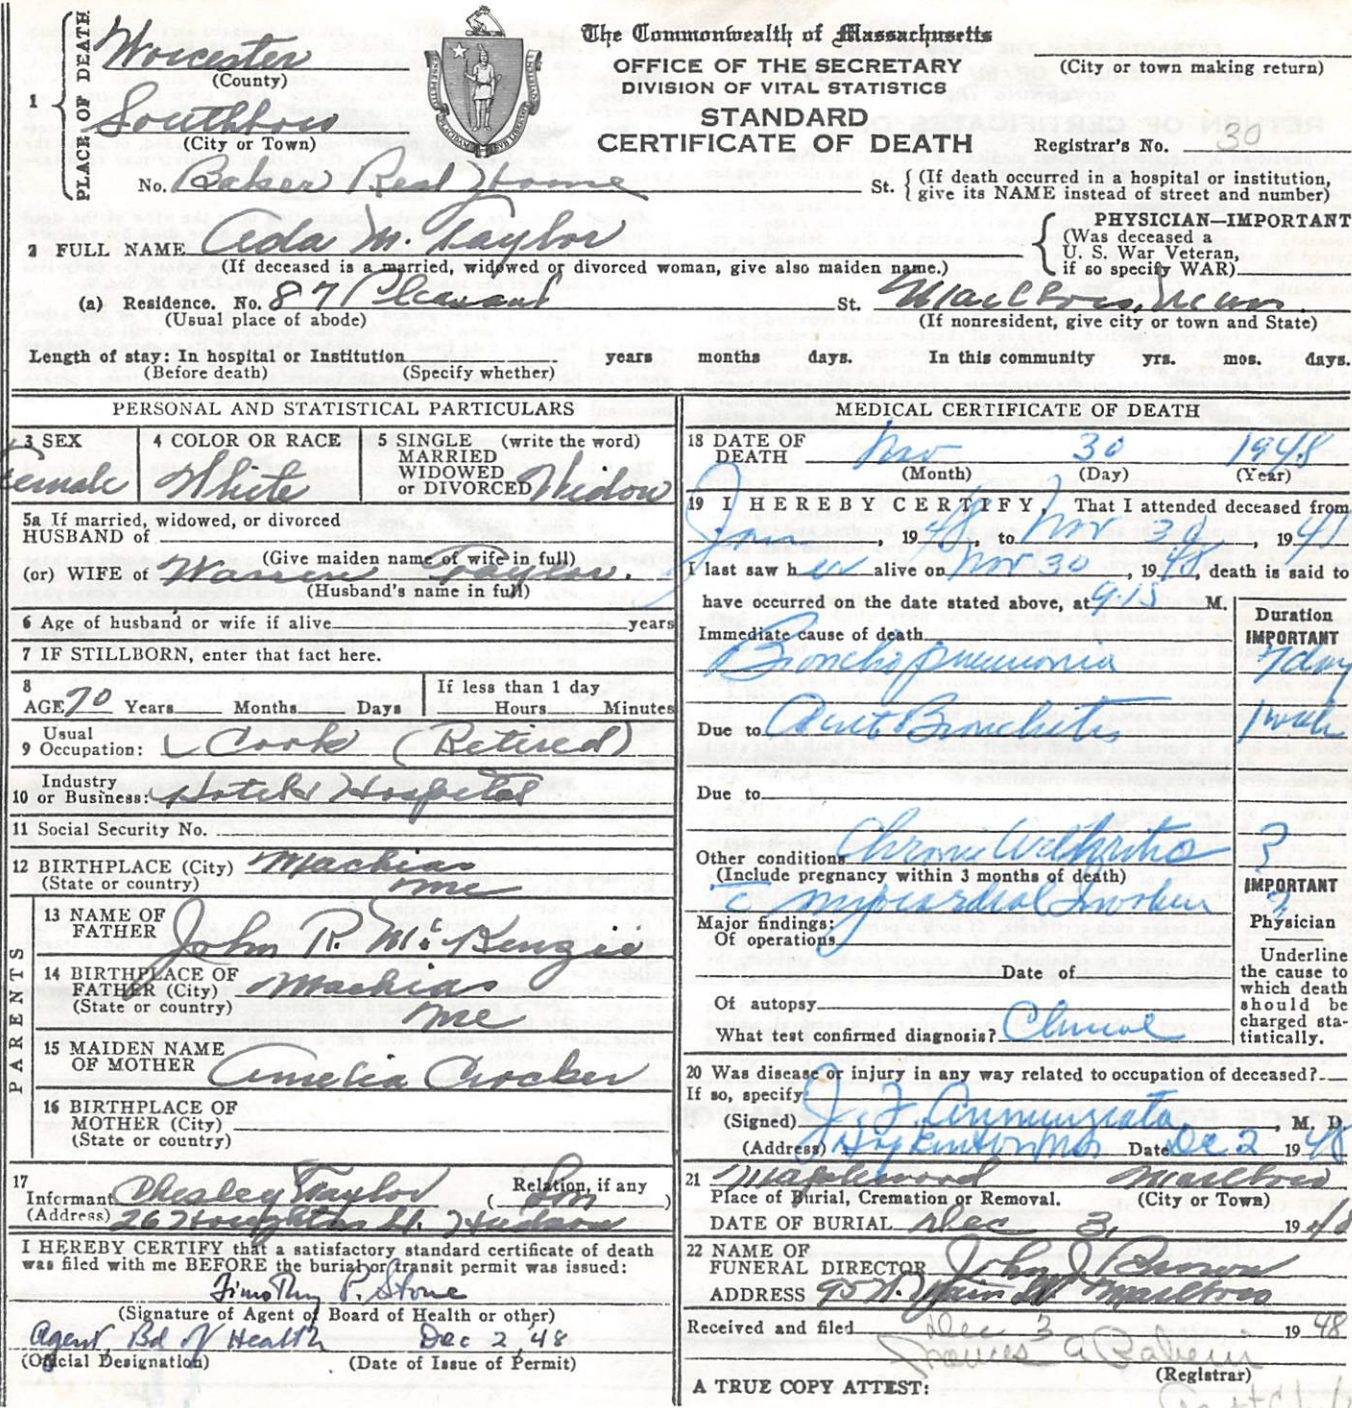 The Commonwealth of Massachusetts
OFFICE OF THE SECRETARY
DIVISION OF VITAL STATISTICS
STANDARD
CERTIFICATE OF DEATH
(City or town making return)
Registrar's No. 30
1 PLACE OF DEATH
Worcester
(County)
Southboro
(City or Town)
No. Baker Rest Home St.
(If death occurred in a hospital or institution,
give its NAME instead of street and number)
2 FULL NAME Ada M. Taylor
(If deceased is a married, widowed or divorced woman, give also maiden name.)
PHYSICIAN—IMPORTANT
(Was deceased a
U. S. War Veteran,
if so specify WAR)
(a) Residence. No. 87 Pleasant St. Marlboro, Mass.
(Usual place of abode)
(If nonresident, give city or town and State)
Length of stay: In hospital or Institution years months days. In this community yrs. mos. days.
(Before death) (Specify whether)
PERSONAL AND STATISTICAL PARTICULARS
3 SEX
Female
4 COLOR OR RACE
White
5 SINGLE (write the word)
MARRIED
WIDOWED
or DIVORCED Widow
5a If married, widowed, or divorced
HUSBAND of
(Give maiden name of wife in full)
(or) WIFE of Warren Taylor.
(Husband's name in full)
6 Age of husband or wife if alive years
7 IF STILLBORN, enter that fact here.
8
AGE 70 Years Months Days
If less than 1 day
Hours Minutes
Usual
9 Occupation: Cook (Retired)
Industry
10 or Business: Hospital
11 Social Security No.
12 BIRTHPLACE (City) Machias
(State or country) Me
PARENTS
13 NAME OF
FATHER John R. McKenzie
14 BIRTHPLACE OF
FATHER (City) Machias
(State or country) Me
15 MAIDEN NAME
OF MOTHER Amelia Crocker
16 BIRTHPLACE OF
MOTHER (City)
(State or country)
17
Informant Chesley Taylor (Relation, if any Son)
(Address) 26 Houghton St. Hudson
I HEREBY CERTIFY that a satisfactory standard certificate of death
was filed with me BEFORE the burial or transit permit was issued:
Timothy P. Stone
(Signature of Agent of Board of Health or other)
Agent, Bd of Health Dec 2, 48
(Official Designation) (Date of Issue of Permit)
MEDICAL CERTIFICATE OF DEATH
18 DATE OF
DEATH Nov 30 1948
(Month) (Day) (Year)
19 I HEREBY CERTIFY, That I attended deceased from
Jan, 1948, to Nov 30, 1948
I last saw her alive on Nov 30, 1948, death is said to
have occurred on the date stated above, at 9.15 M.
Duration
IMPORTANT
Immediate cause of death
Broncho pneumonia 7 day
Due to Acute Bronchitis 1 week
Due to
Other conditions Chronic Arthritis ?
(Include pregnancy within 3 months of death)
c myocardial ?
IMPORTANT
Major findings:
Of operations
Date of
Of autopsy
What test confirmed diagnosis? Clinical
Physician
Underline
the cause to
which death
should be
charged sta-
tistically.
20 Was disease or injury in any way related to occupation of deceased?
If so, specify
(Signed) J. F. Annunziata, M. D.
(Address) Hopkinton Mass Date Dec 2 1948
21 Maplewood Marlboro
Place of Burial, Cremation or Removal. (City or Town)
DATE OF BURIAL Dec 3, 1948
22 NAME OF
FUNERAL DIRECTOR John J. Brown
ADDRESS 95 W. Main St Marlboro
Received and filed Dec 3 1948
(Registrar)
A TRUE COPY ATTEST: